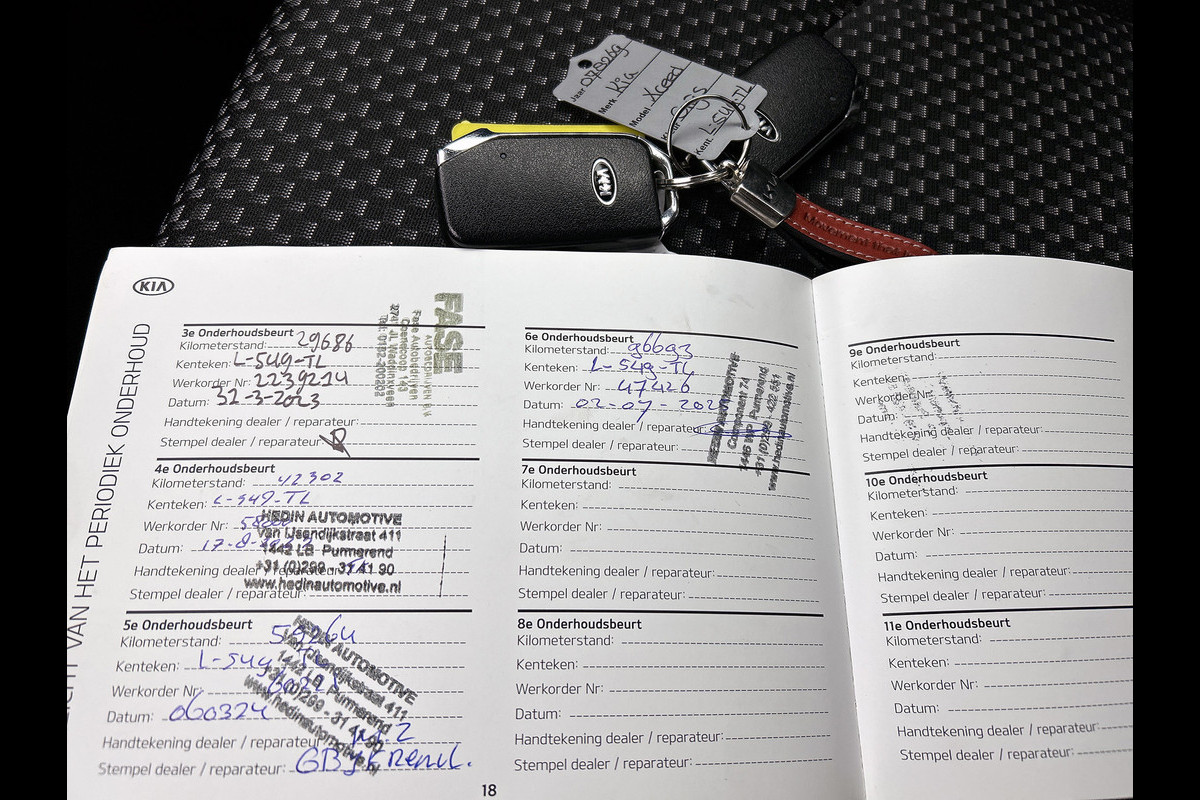 Jaar
Merk Kia
Model Xceed
Kleur Grijs
Kent. L-549-TL
Movement that
KIA
VAN HET PERIODIEK ONDERHOUD
3e Onderhoudsbeurt
Kilometerstand: 29686
Kenteken: L-549-TL
Werkorder Nr: 2239214
Datum: 31-3-2023
Handtekening dealer / reparateur:
Stempel dealer / reparateur:
FASE
AUTOBEDRIJVEN B.V.
Fase Autobedrijven
Coenecoop 143
2741 JL Waddinxveen
Tel: 0182-300202
4e Onderhoudsbeurt
Kilometerstand: 42302
Kenteken: L-549-TL
Werkorder Nr:
Datum: 17-8-
Handtekening dealer / reparateur:
Stempel dealer / reparateur:
HEDIN AUTOMOTIVE
Van IJsendijkstraat 411
1442 LB Purmerend
+31 (0)299 - 31 41 90
www.hedinautomotive.nl
5e Onderhoudsbeurt
Kilometerstand:
Kenteken: L-549-TL
Werkorder Nr:
Datum: 060324
Handtekening dealer / reparateur:
Stempel dealer / reparateur:
HEDIN AUTOMOTIVE
Van IJsendijkstraat 411
1442 LB Purmerend
+31 (0)299 - 31 41 90
www.hedinautomotive.nl
18
6e Onderhoudsbeurt
Kilometerstand: 96693
Kenteken: L-549-TL
Werkorder Nr: 47426
Datum: 02-07-202
Handtekening dealer / reparateur:
Stempel dealer / reparateur:
HEDIN AUTOMOTIVE
Component 74
1446 WP Purmerend
+31 (0)299 - 422 551
www.hedinautomotive.nl
7e Onderhoudsbeurt
Kilometerstand:
Kenteken:
Werkorder Nr:
Datum:
Handtekening dealer / reparateur:
Stempel dealer / reparateur:
8e Onderhoudsbeurt
Kilometerstand:
Kenteken:
Werkorder Nr:
Datum:
Handtekening dealer / reparateur:
Stempel dealer / reparateur:
9e Onderhoudsbeurt
Kilometerstand:
Kenteken:
Werkorder Nr:
Datum:
Handtekening dealer / reparateur:
Stempel dealer / reparateur:
10e Onderhoudsbeurt
Kilometerstand:
Kenteken:
Werkorder Nr:
Datum:
Handtekening dealer / reparateur:
Stempel dealer / reparateur:
11e Onderhoudsbeurt
Kilometerstand:
Kenteken:
Werkorder Nr:
Datum:
Handtekening dealer / reparateur:
Stempel dealer / reparateur: